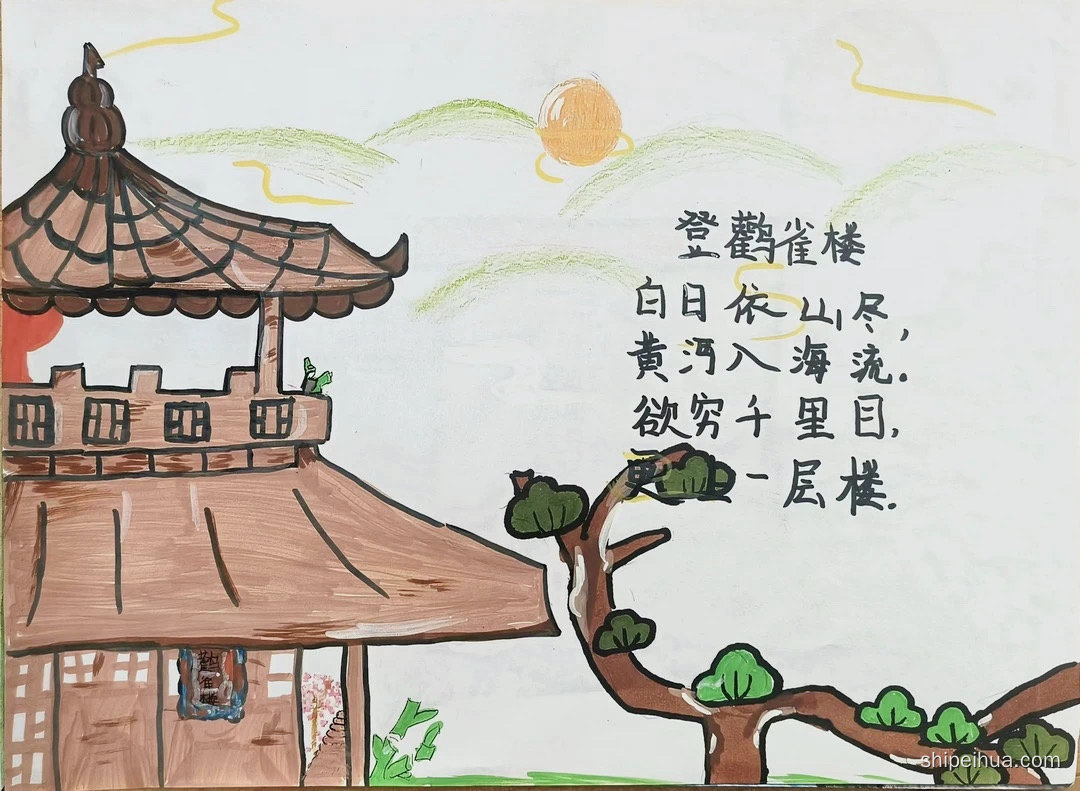 登鹳雀楼
白日依山尽,
黄河入海流.
欲穷千里目,
更一层楼.
雀楼
shipeihua.com